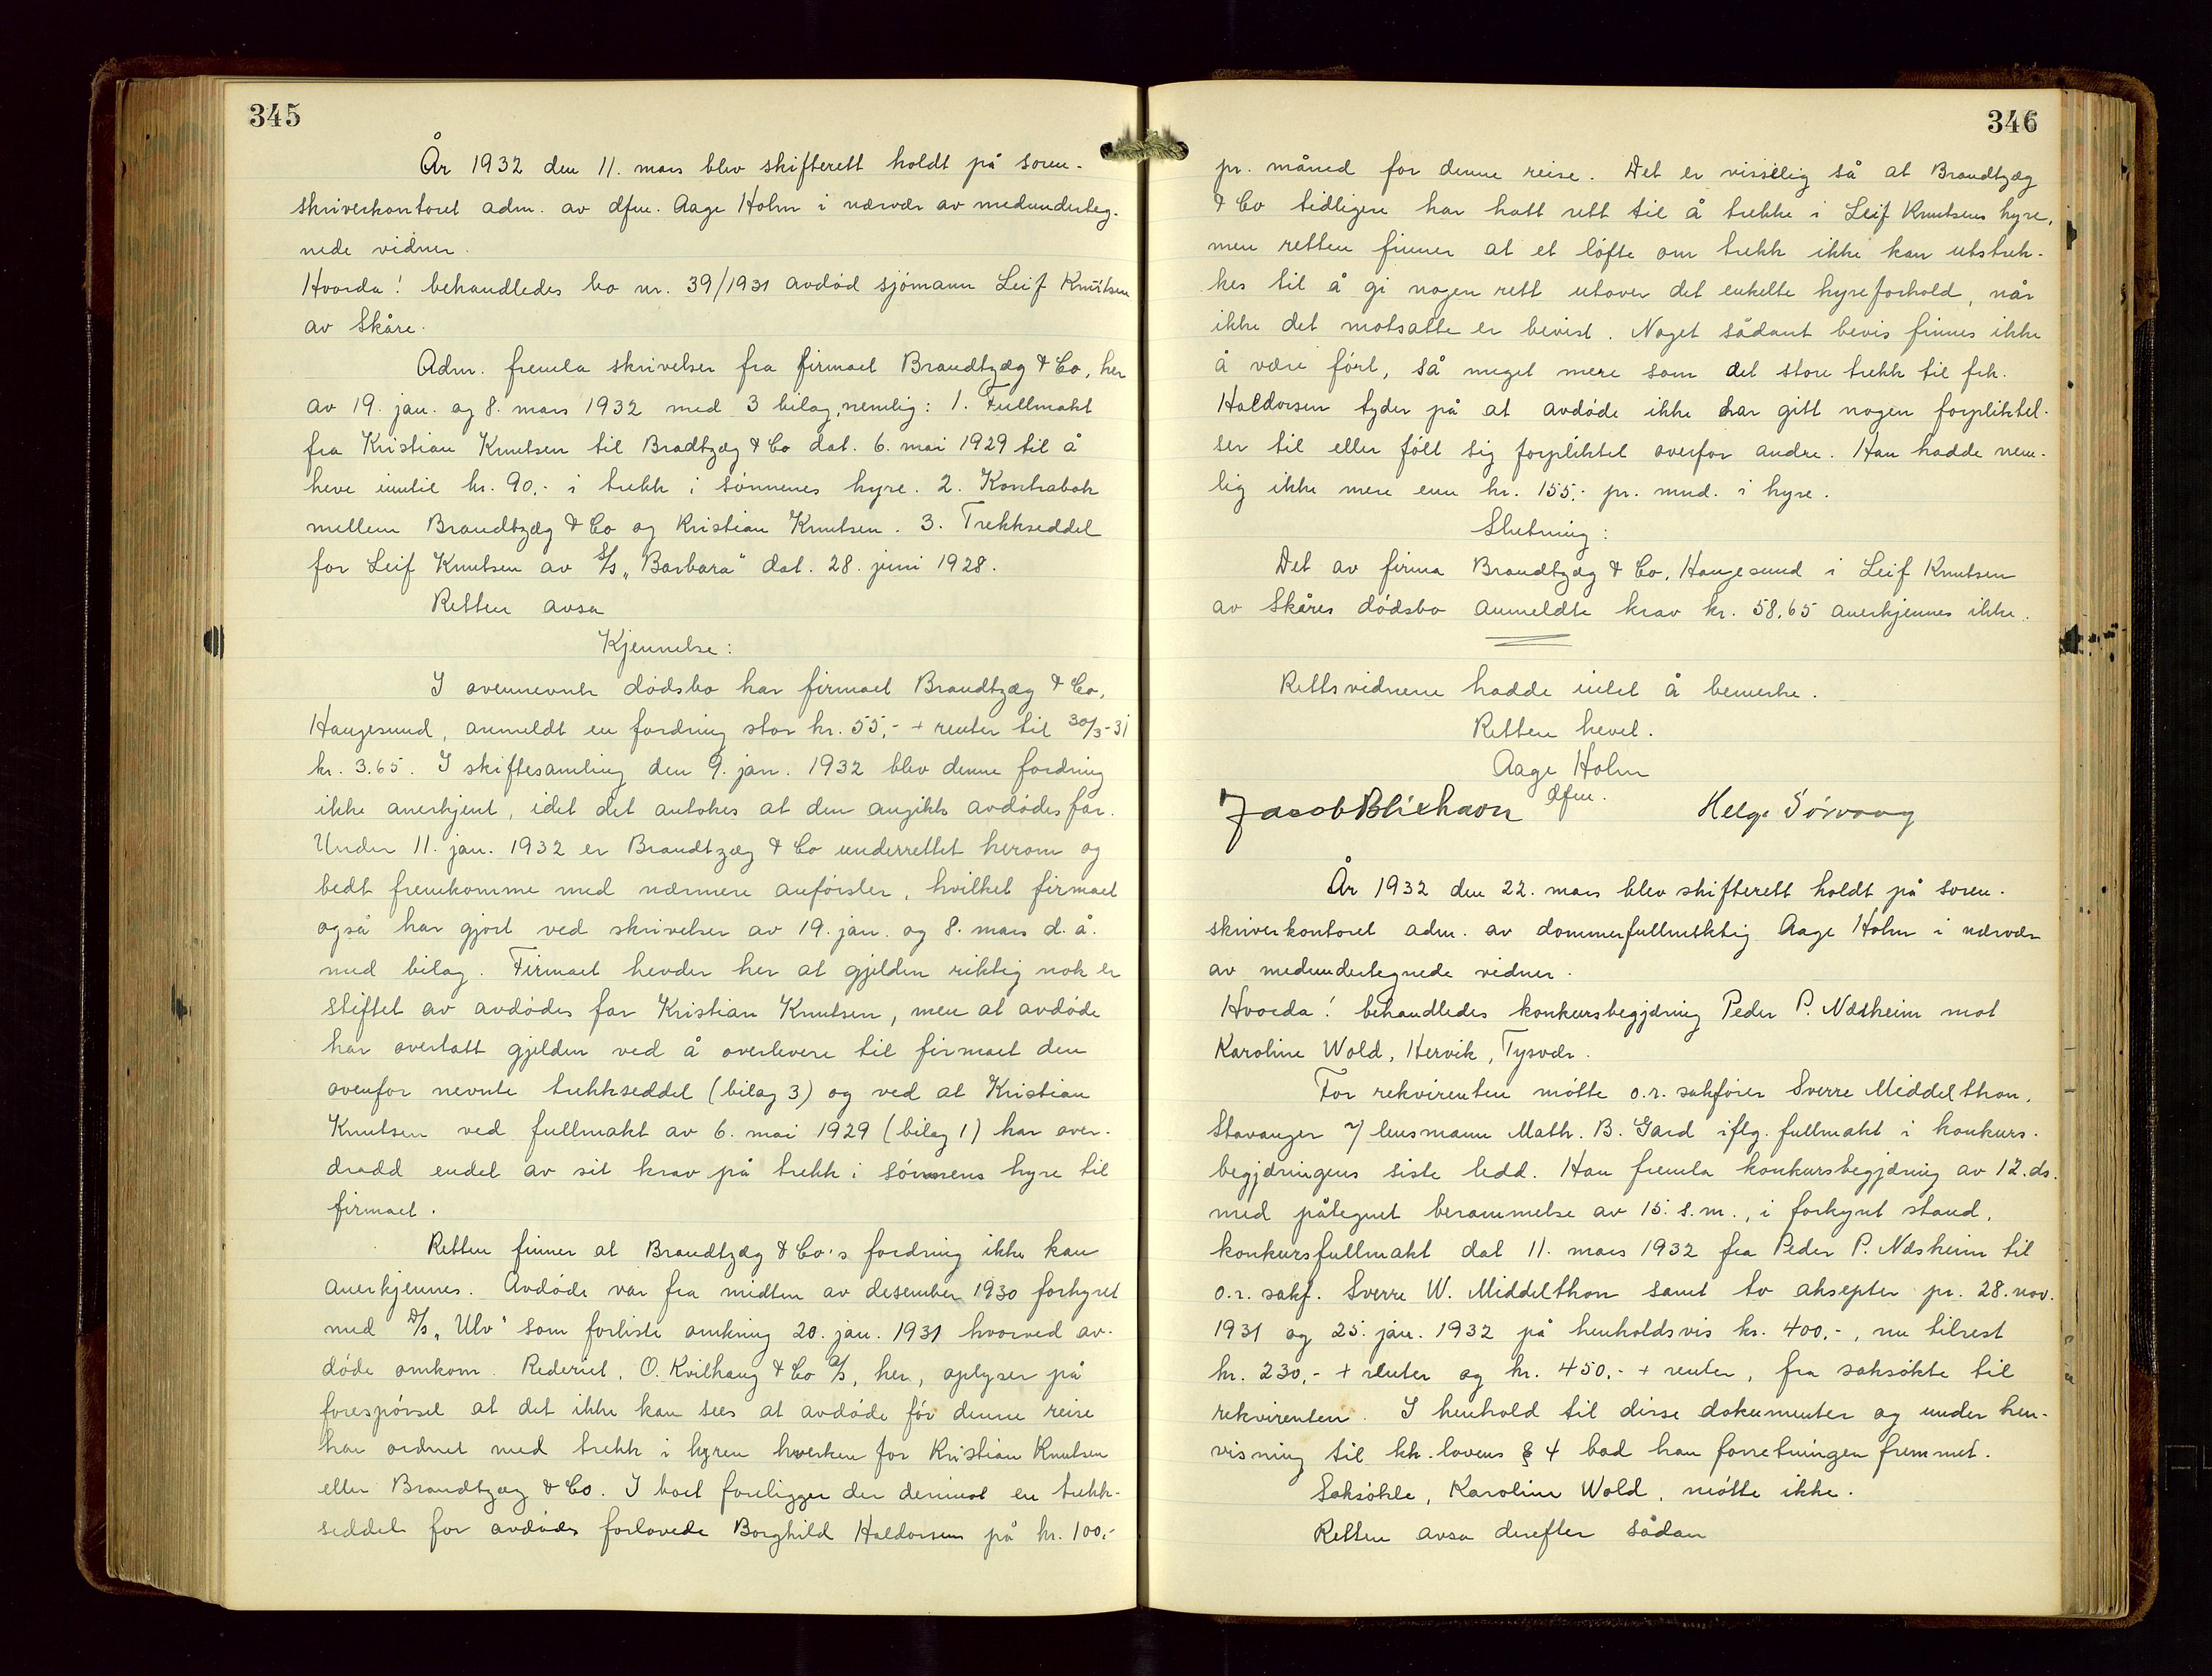 345
År 1932 den 11. mars blev skifterett holdt på soren-
skriverkontoret adm. av dfm. Aage Holm i nærvær av medunderteg-
nede vidner.
Hvorda! behandledes bo nr. 39/1931 avdød sjømann Leif Knutsen
av Skåre.
Adm. fremla skrivelser fra firmaet Brandtzæg & Co, her
av 19. jan. og 8. mars 1932 med 3 bilag, nemlig: 1. Fullmakt
fra Kristian Knutsen til Bradtzæg & Co dat. 6. mai 1929 til å
heve inntil kr. 90.- i trekk i sønnenes hyre. 2. Kontrabok
mellem Brandtzæg & Co og Kristian Knutsen. 3. Trekkseddel
for Leif Knutsen av S/S „Barbara" dat. 28. juni 1928.
Retten avsa
Kjennelse:
I ovennevnte dødsbo har firmaet Brandtzæg & Co,
Haugesund, anmeldt en fordring stor kr. 55,- + renter til 30/3-31
kr. 3.65. I skiftesamling den 9. jan. 1932 blev denne fordring
ikke anerkjent, idet det antokes at den angikk avdødes far.
Under 11. jan. 1932 er Brandtzæg & Co underrettet herom og
bedt fremkomme med nærmere anførsler, hvilket firmaet
også har gjort ved skrivelser av 19. jan. og 8. mars d. å.
med bilag. Firmaet hevder her at gjelden riktig nok er
stiftet av avdødes far Kristian Knutsen, men at avdøde
har overtatt gjelden ved å overlevere til firmaet den
ovenfor nevnte trekkseddel (bilag 3) og ved at Kristian
Knutsen ved fullmakt av 6. mai 1929 (bilag 1) har over-
dradd endel av sit krav på trekk i sønnens hyre til
firmaet.
Retten finner at Brandtzæg & Co's fordring ikke kan
anerkjennes. Avdøde var fra midten av desember 1930 forhyret
med D/S „Ulv" som forliste omkring 20. jan. 1931 hvorved av-
døde omkom. Rederiet, O. Kvilhaug & Co A/S, her, oplyser på
forespørsel at det ikke kan sees at avdøde før denne reise
har ordnet med trekk i hyren hverken for Kristian Knutsen
eller Brandtzæg & Co. I boet foreligger der derimot en trekk-
seddel for avdødes forlovede Borghild Haldorsen på kr. 100,-
346
pr. måned for denne reise. Det er visselig så at Brandtzæg
& Co tidligere har hatt rett til å trekke i Leif Knutsens hyre,
men retten finner at et løfte om trekk ikke kan utstrek-
kes til å gi nogen rett utover det enkelte hyreforhold, når
ikke det motsatte er bevist. Noget sådant bevis finnes ikke
å være ført, så meget mere som det store trekk til frk.
Haldorsen tyder på at avdøde ikke har gitt nogen forpliktel-
ser til eller følt sig forpliktet overfor andre. Han hadde nem-
lig ikke mere enn kr. 155,- pr. mnd. i hyre.
Slutning:
Det av firma Brandtzæg & Co, Haugesund i Leif Knutsen
av Skåres dødsbo anmeldte krav kr. 58,65 anerkjennes ikke.
Rettsvidnene hadde intet å bemerke.
Retten hevet.
Aage Holm
dfm.
Jacob Blikhavn Helge Sörvaag
År 1932 den 22. mars blev skifterett holdt på soren-
skriverkontoret adm. av dommerfullmektig Aage Holm i nærvær
av medundertegnede vidner.
Hvorda! behandledes konkursbegjæring Peder P. Næsheim mot
Karoline Wold, Hervik, Tysvær.
For rekvirenten møtte o.r. sakfører Sverre Middelthon,
Stavanger v/ lensmann Math. B. Gard iflg. fullmakt i konkurs-
begjæringens siste ledd. Han fremla konkursbegjæring av 12. ds.
med påtegnet berammelse av 15. s.m., i forkynt stand,
konkursfullmakt dat 11. mars 1932 fra Peder P. Næsheim til
o.r. sakf. Sverre W. Middelthon samt to aksepter pr. 28. nov.
1931 og 25. jan. 1932 på henholdsvis kr. 400,-, nu tilrest
kr. 230,- + renter og kr. 450,- + renter, fra saksøkte til
rekvirenten. I henhold til disse dokumenter og under hen-
visning til kk. lovens § 4 bad han forretningen fremmet.
Saksøkte, Karoline Wold, møtte ikke.
Retten avsa derefter sådan